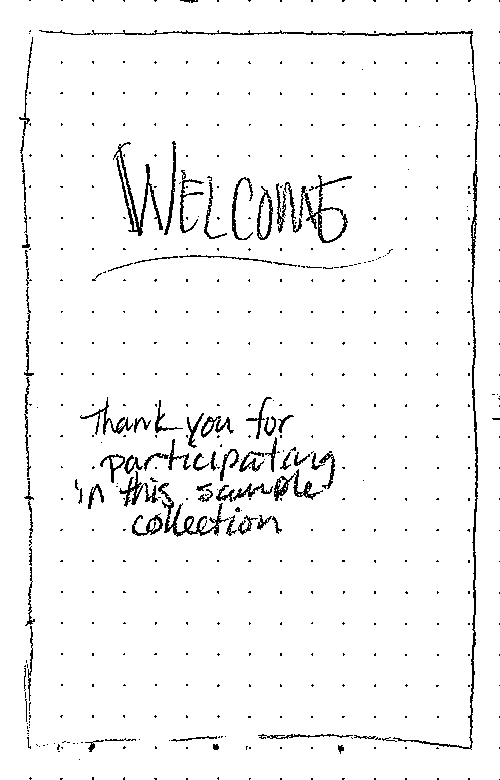 WELCOME
Thank you for
participating
in this sample
collection